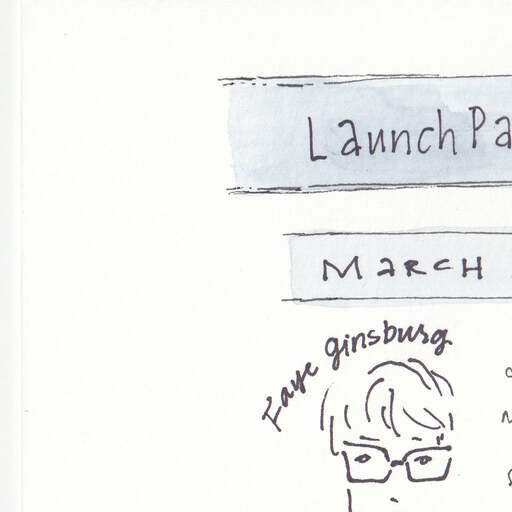 Launch Pa
March
Faye Ginsburg